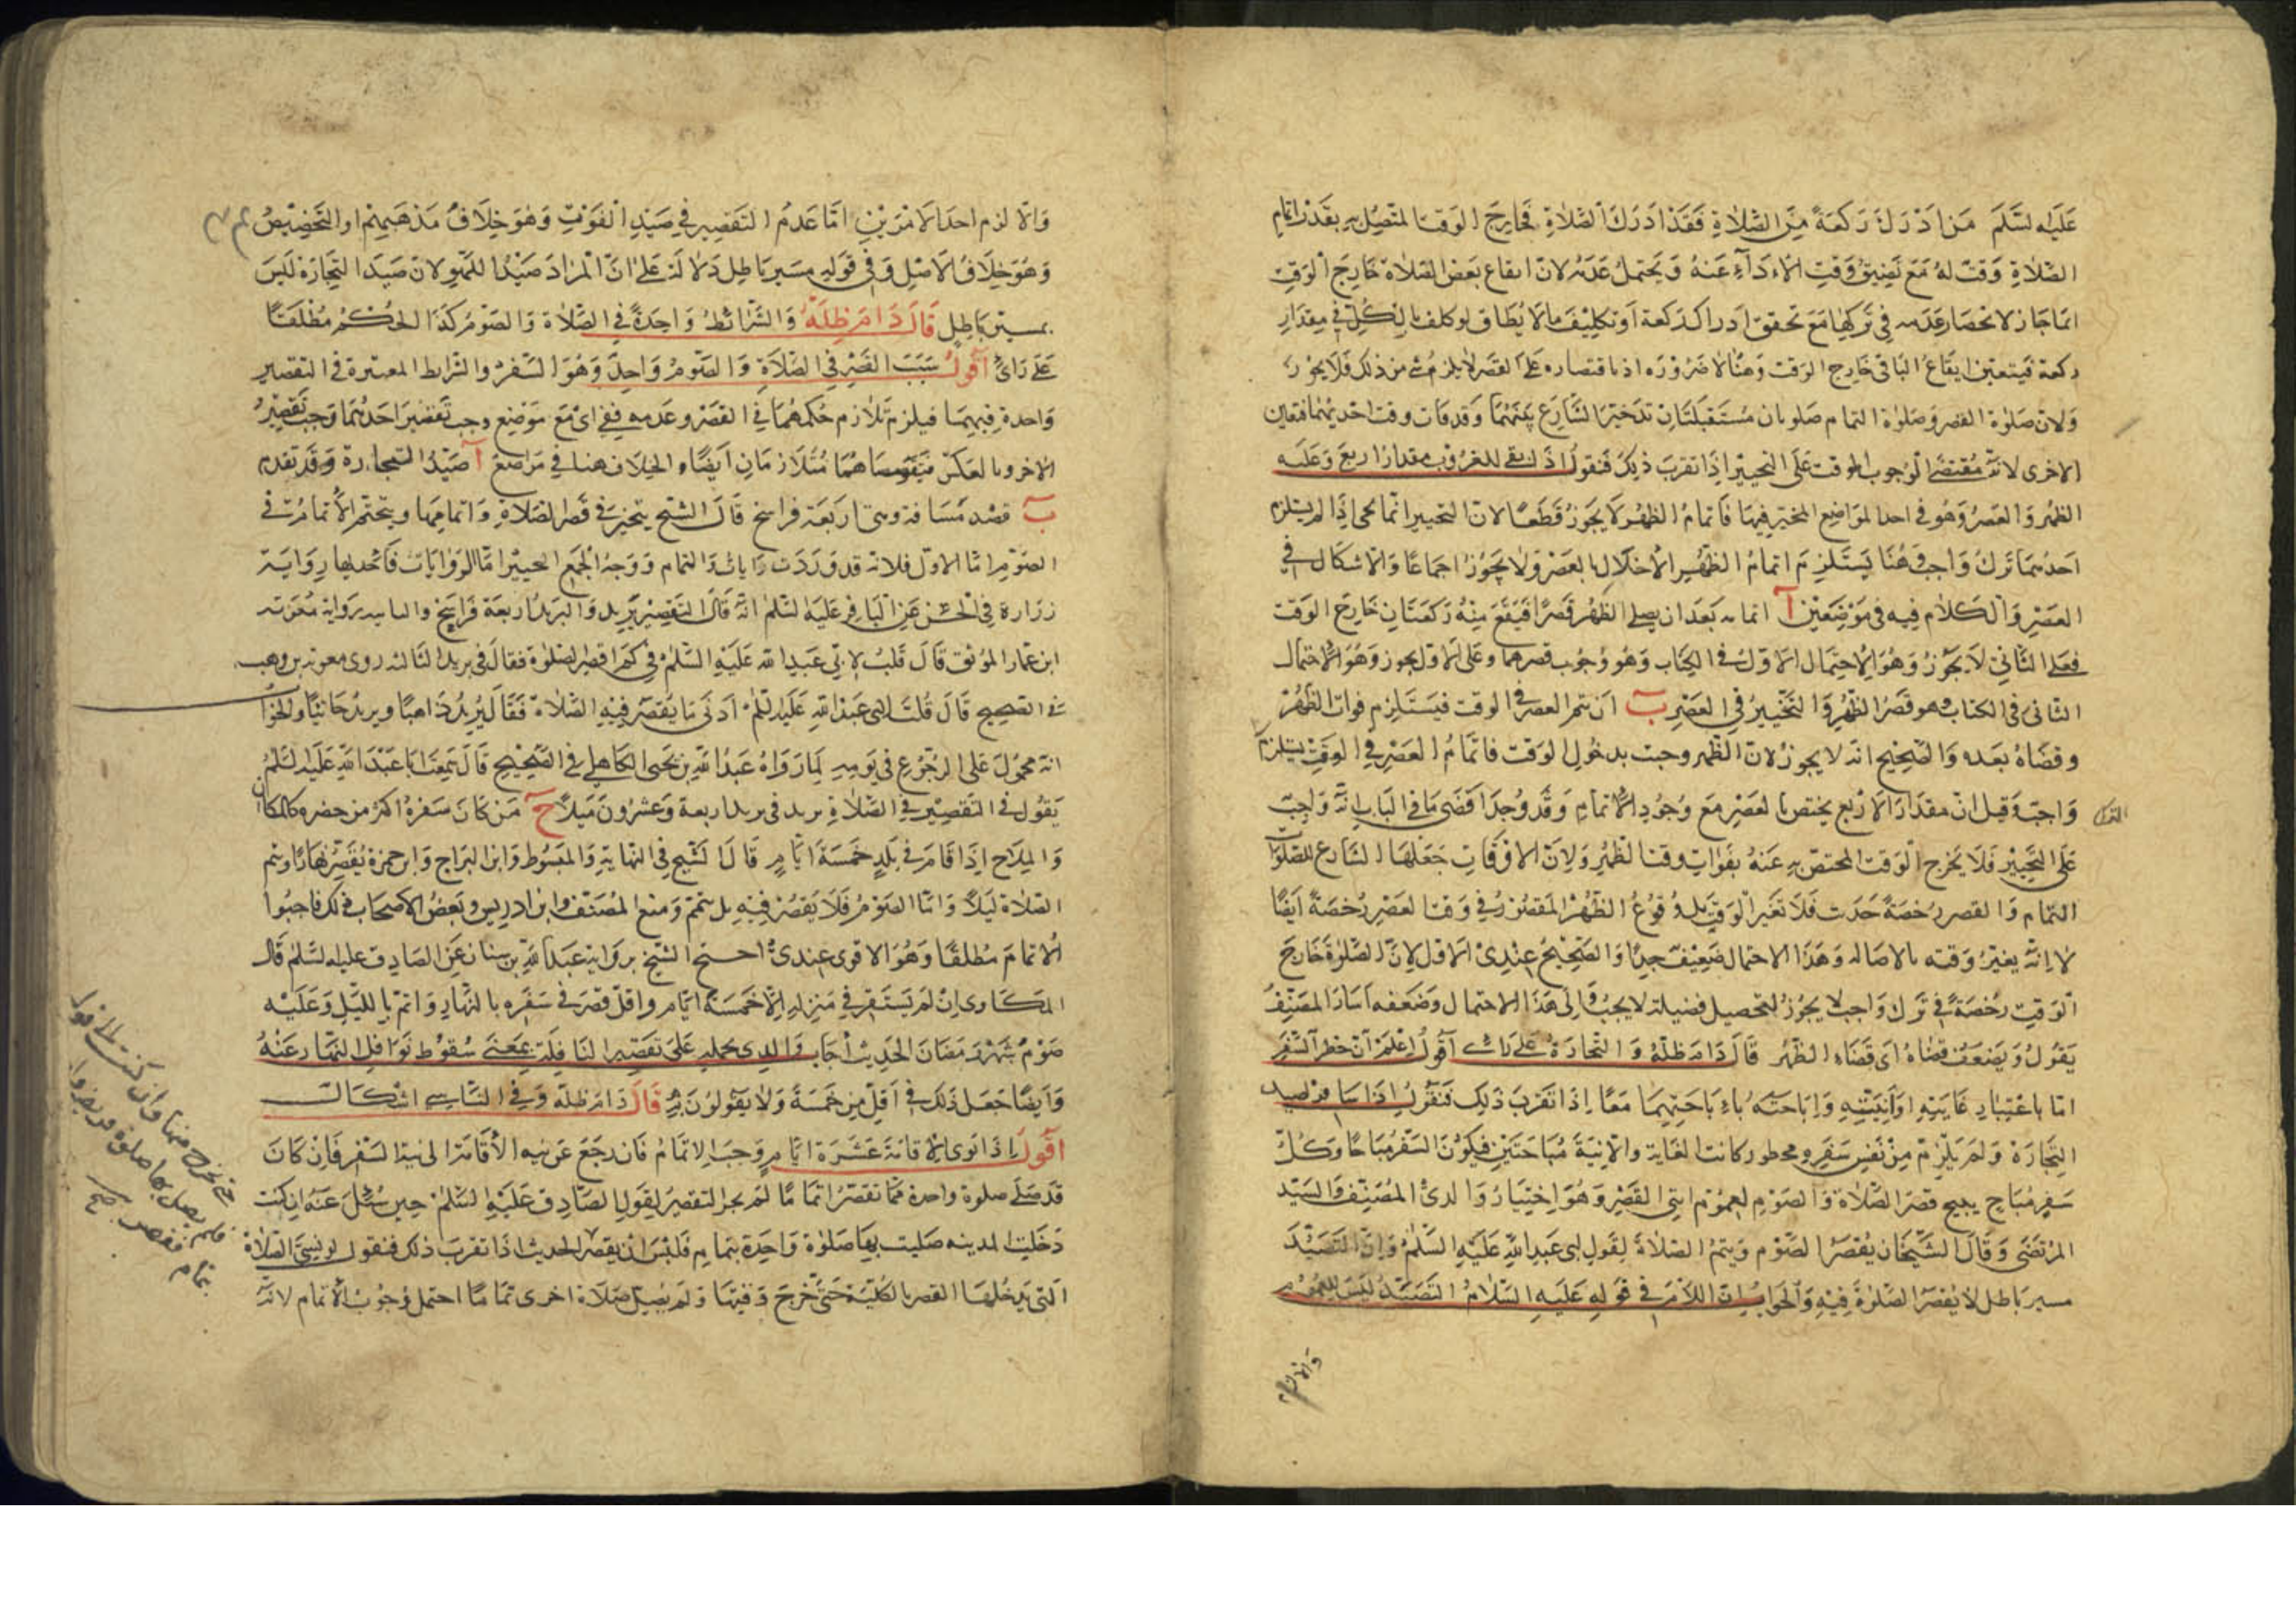 عليه السلم من ادرك ركعة من الصلاة فقد ادرك الصلاة فخارج الوقت المتصل به بقدر اتمام
الصلاة وقت له مع تضيق وقت الاداء عنه ويحتمل عدمه لان ايقاع بعض الصلاة خارج الوقت
انما جاز لانحصار عدمه في تركها مع تحقق ادراك ركعة او تكليف ما لا يطاق لو كلف بالكل في مقدار
ركعة فيتعين ايقاع الباقي خارج الوقت وهنا لا ضرورة اذ باقتصاره على القصر لا يلزم شئ من ذلك فلا يجوز
ولان صلوة القصر وصلوة التمام صلوتان مستقبلتان قد خير الشارع بينهما وقد فات وقت احديهما فتعين
الاخرى لانه مقتضى الوجوب الموقت على التخيير اذا تقرب ذلك فنقول اذا بقى للغروب مقدار اربع وعليه
الظهر والعصر وهو في احد المواضع المخير فيها فاتمام الظهر لا يجوز قطعا لان التخيير انما يجئ اذا لم يستلزم
احدهما ترك واجب وهنا يستلزم اتمام الظهر الاخلال بالعصر ولا يجوز اجماعا والاشكال في
العصر والكلام فيه في موضعين آ اتمامه بعد ان يصلي الظهر قصرا فيقع منه ركعتان خارج الوقت
فعلى الثاني لا يجوز وهو الاحتمال الاول في الكتاب وهو وجوب قصرهما وعلى الاول يجوز وهو الاحتمال
الثاني في الكتاب وهو قصر الظهر والتخيير في العصر ب ان يتم العصر في الوقت فيستلزم فوات الظهر
وقضاه بعده والصحيح انه لا يجوز لان الظهر وجبت بدخول الوقت فاتمام العصر في الوقت يستلزم
واجبة وقيل ان مقدار الاربع يختص بالعصر مع وجود الاتمام وقد وجد اقصى ما في الباب انه واجب
على التخيير فلا يخرج الوقت المختص به عنه بفوات وقت الظهر ولان الاوقات جعلها الشارع للصلوة
التمام والقصر رخصة حدت فلا تغير الوقت بل وقوع الظهر المقصور في وقت العصر رخصة ايضا
لا انه يغير وقته بالاصالة وهذا الاحتمال ضعيف جدا والصحيح عندي الاول لان الصلوة خارج
الوقت رخصة في ترك واجب لا يجوز لتحصيل فضيلة لا يجب والى هذا الاحتمال وضعفه اشار المصنف
بقوله ويضعف قضاه اى قضاء الظهر قال دام ظله والتجارة على رأى اقول اعلم ان خطر السفر
اما باعتبار غايته او انيته واباحته باباحتهما معا اذا تقرب ذلك فنقول اذا سافر لصيد
التجارة ولم يلزم من نفس سفره محظور كانت الغاية والانية مباحتين فيكون السفر مباحا وكل
سفر مباح يبيح قصر الصلاة والصوم لعموم ايتى القصر وهو اختيار والدى المصنف والسيد
المرتضى وقال الشيخان يقصر الصوم ويتم الصلاة لقول ابى عبد الله عليه السلم وان التصيد
مسير باطل لا يقصر الصلوة فيه والجواب ان اللام في قوله عليه السلام التصيد ليس للعموم
والا لزم
والا لزم احد الامرين اما عدم التقصير في صيد القوت وهو خلاف مذهبهم او التخصيص
وهو خلاف الاصل وفي قوله مسير باطل دلالة على ان المراد صيد اللهو لان صيد التجارة ليس
بمسير باطل قال دام ظله والشرائط واحدة في الصلاة والصوم وكذا الحكم مطلقا
على رأى اقول سبب القصر في الصلاة والصوم واحد وهو السفر والشرايط المعتبرة في التقصير
واحدة فيهما فيلزم تلازم حكمهما في القصر وعدمه ففي اى موضع وجب تقصير احدهما وجب تقصير
الاخر وبالعكس فهما متلازمان ايضا والخلاف هنا في مواضع آ صيد التجارة وقد تقدم
ب قصد مسافة وهى اربعة فراسخ قال الشيخ يتخير في قصر الصلاة واتمامها ويتحتم الاتمام في
الصوم اما الاول فلانه قد وردت روايات والتمام ووجه الجمع التخيير اما الروايات فاحديها رواية
زرارة في الحسن عن الباقر عليه السلم انه قال التقصير بريد والبريد اربعة فراسخ والثانية رواية معوية
ابن عمار الموثق قال قلت لابي عبد الله عليه السلم في كم اقصر الصلوة فقال في بريد الثالثة روى معوية بن وهب
في الصحيح قال قلت لابى عبد الله عليه السلم ادنى ما يقصر فيه الصلاة فقال بريد ذاهبا وبريد جائيا والجواب
انه محمول على الرجوع في يومه لما رواه عبد الله بن يحيى الكاهلي في الصحيح قال سمعت ابا عبد الله عليه السلم
يقول في التقصير في الصلاة بريد في بريد اربعة وعشرون ميلا ح من كان سفره اكثر من حضره كالمكارى
والملاح اذا اقام في بلد خمسة ايام قال الشيخ في النهاية والمبسوط وابن البراج وابن حمزة يقصر نهارا ويتم
الصلاة ليلا واما الصوم فلا يقصر فيه بل يتم ومنع المصنف وابن ادريس وبعض الاصحاب ذلك فاوجبوا
الاتمام مطلقا وهو الاقوى عندى احتج الشيخ برواية عبد الله بن سنان عن الصادق عليه السلم قال
المكارى ان لم يستقر في منزله الا خمسة ايام واقل قصر في سفره بالنهار واتم بالليل وعليه
صوم شهر رمضان الحديث اجاب والدى بحمله على تقصير النافلة بمعنى سقوط نوافل النهار عنه
وايضا جعل ذلك في اقل من خمسة ولا يقولون به قال دام ظله وفي الناسي اشكال
اقول اذا نوى الاقامة عشرة ايام وجب الاتمام فان رجع عن نية الاقامة الى نية السفر فان كان
قد صلى صلوة واحدة مما تقصر اتماما لم يجز التقصير لقول الصادق عليه السلم حين سئل عنه ان كنت
دخلت المدينه صليت بها صلوة واحدة بتمام فليس لك ان تقصر الحديث اذا تقرب ذلك فنقول لو نسي الصلاة
التى يدخلها القصر بالكلية حتى خرج وقتها ولم يصل صلاة اخرى تماما احتمل وجوب الاتمام لانه